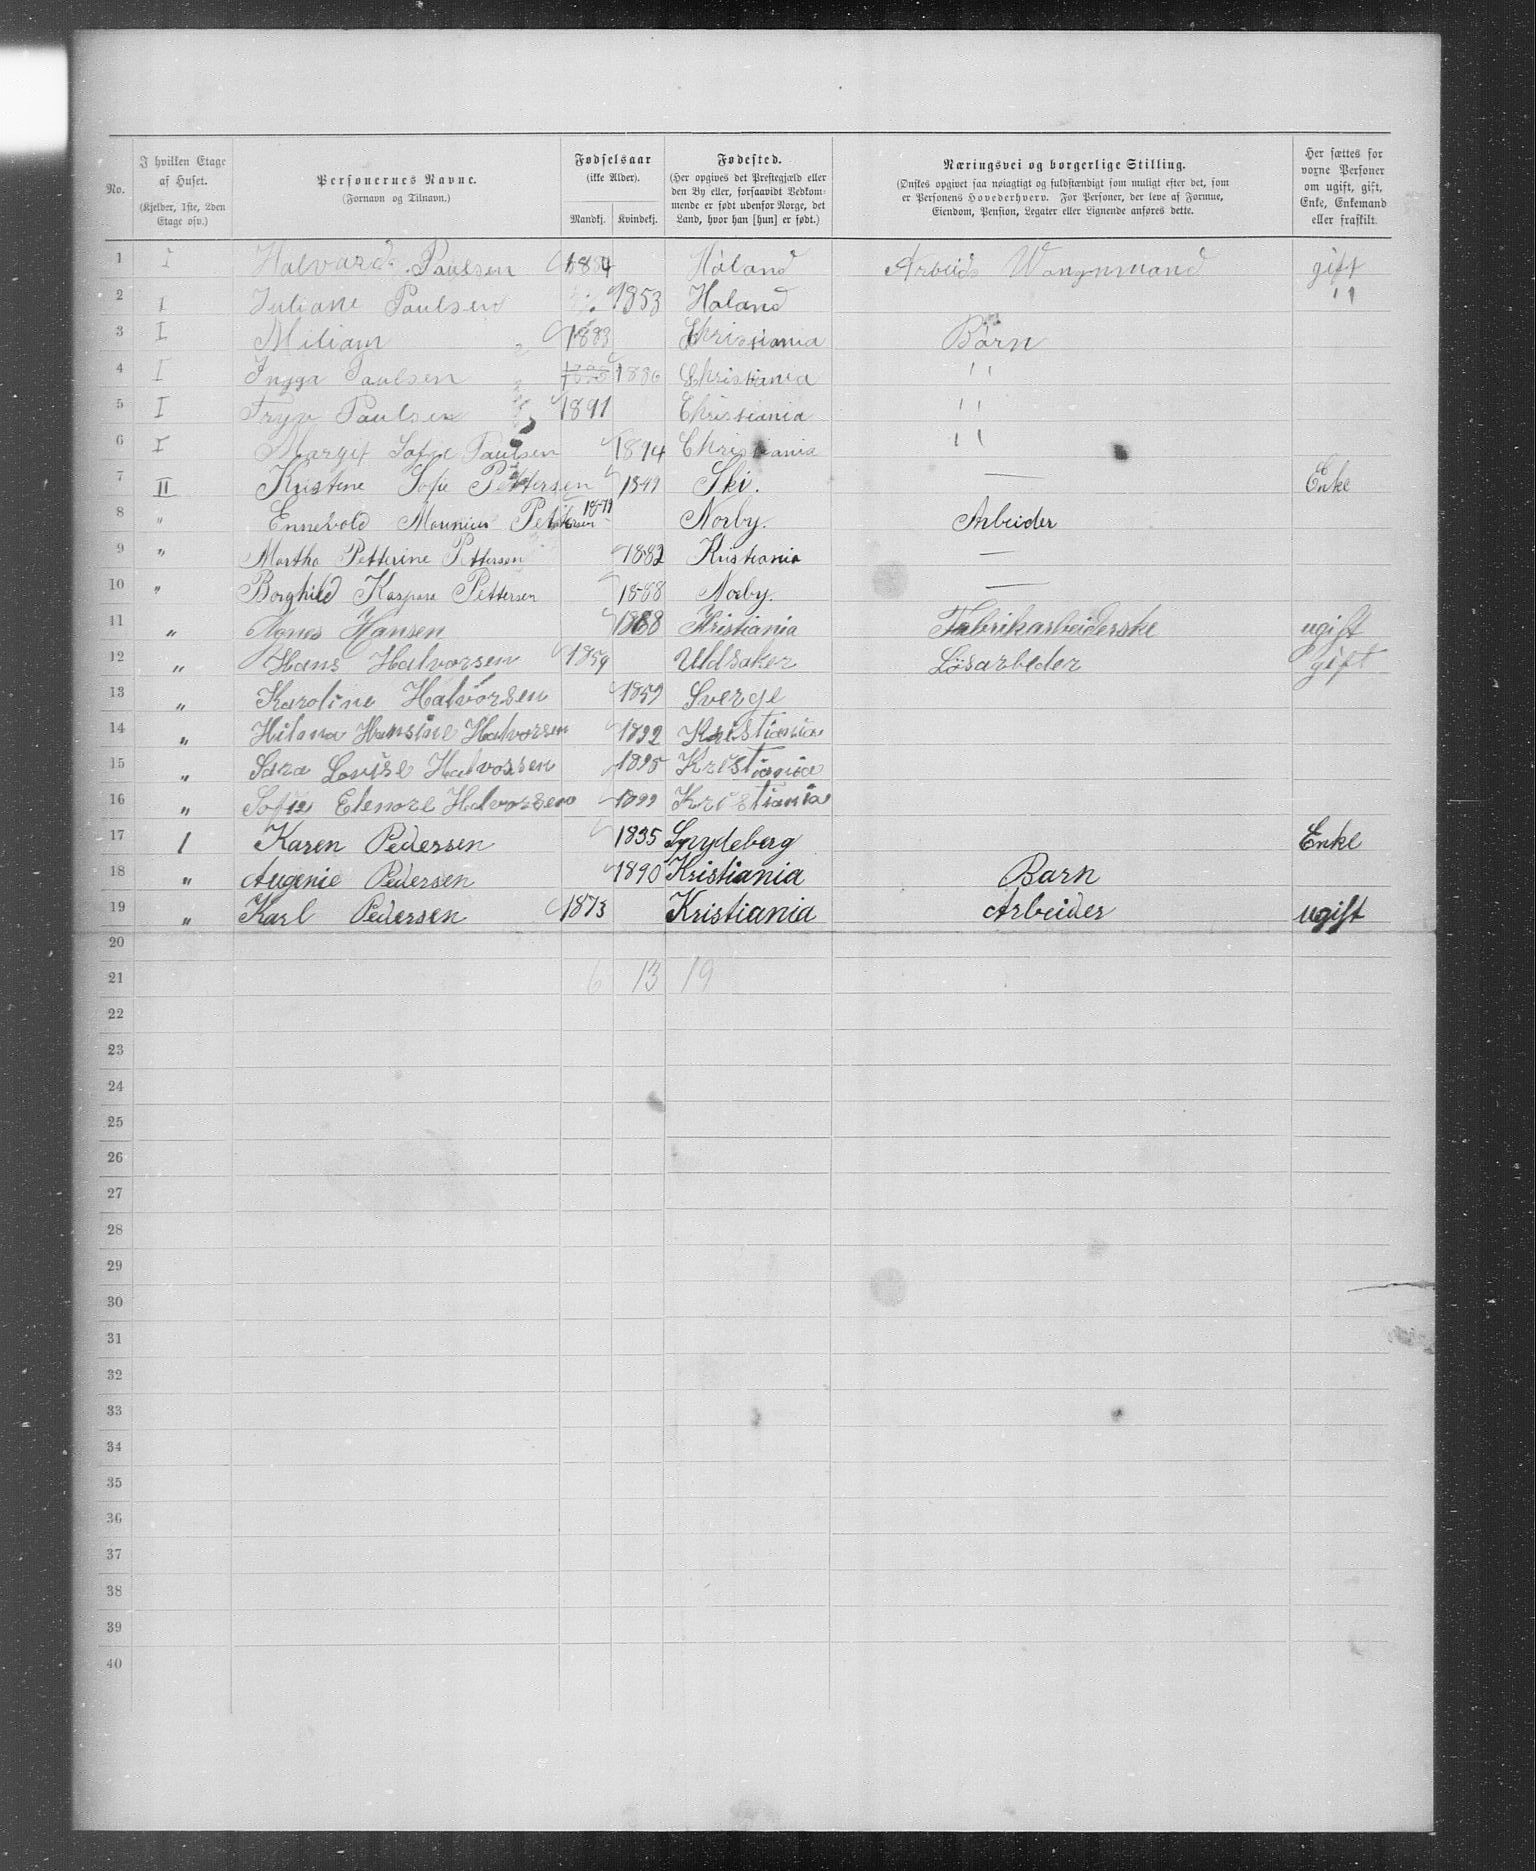 No. | I hvilken Etage af Huset. (Kjelder, 1ste, 2den Etage osv.) | Personernes Navne. (Fornavn og Tilnavn.) | Fødselsaar (ikke Alder). Mandkj. Kvindekj. | Fødested. (Her opgives det Prestegjæld eller den By eller, forsaavidt Vedkommende er født udenfor Norge, det Land, hvor han [hun] er født.) | Næringsvei og borgerlige Stilling. (Ønskes opgivet saa nøiagtigt og fuldstændigt som muligt efter det, som er Personens Hovederhverv. For Personer, der leve af Formue, Eiendom, Pension, Legater eller Lignende anføres dette. | Her sættes for voxne Personer om ugift, gift, Enke, Enkemand eller fraskilt.
1 I Halvard Paulsen Høland Arbeids gift
2 I Juliane Paulsen 1853 Høland "
3 I Miliam " 1883 Christiania Børn
4 I Ingga Paulsen 1886 Christiania "
5 I Tryg Paulsen 1891 Christiania "
6 I Margit Sofie Paulsen 1894 Christiania "
7 II Kristine Sofie Pettersen 1849 Ski. — Enke
8 " Ennevold Mounius Pettersen 1879 Norby. Arbeider
9 " Martha Petterine Pettersen 1882 Kristiania —
10 " Borghild Kaspara Pettersen 1888 Norby. —
11 " Agnes Hansen 1868 Kristiania Fabrikarbeiderske ugift
12 " Hans Halvorsen 1859 Uldsaker Løsarbeder gift
13 " Karoline Halvorsen 1859 Sverge
14 " Hilma Hansine Halvorsen 1892 Kristiania
15 " Sara Lovise Halvorsen 1895 Kristiania
16 " Sofie Elenore Halvorsen 1899 Kristiania
17 I Karen Pedersen 1835 Spydeberg Enke
18 " Augenie Pedersen 1890 Kristiania Barn
19 " Karl Pedersen 1873 Kristiania Arbeider ugift
20
21 6 13 19
22
23
24
25
26
27
28
29
30
31
32
33
34
35
36
37
38
39
40